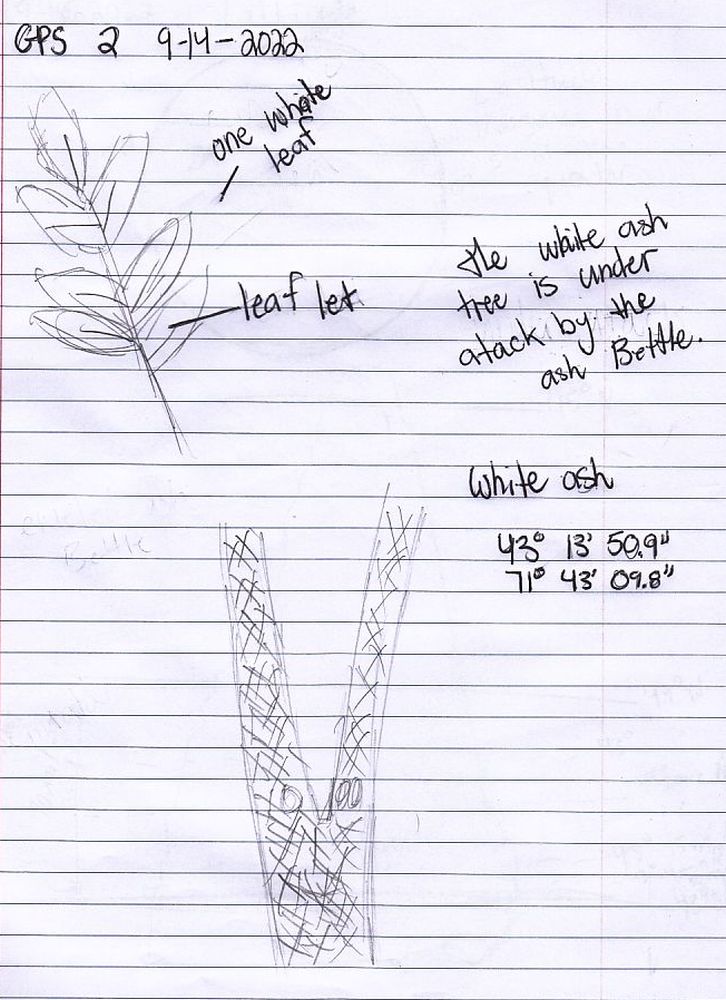 GPS 2 9-14-2022
one whole
leaf
leaf let
the white ash
tree is under
atack by the
ash Bettle.
White ash
43° 13' 50.9"
71° 43' 09.8"
100
Bettle